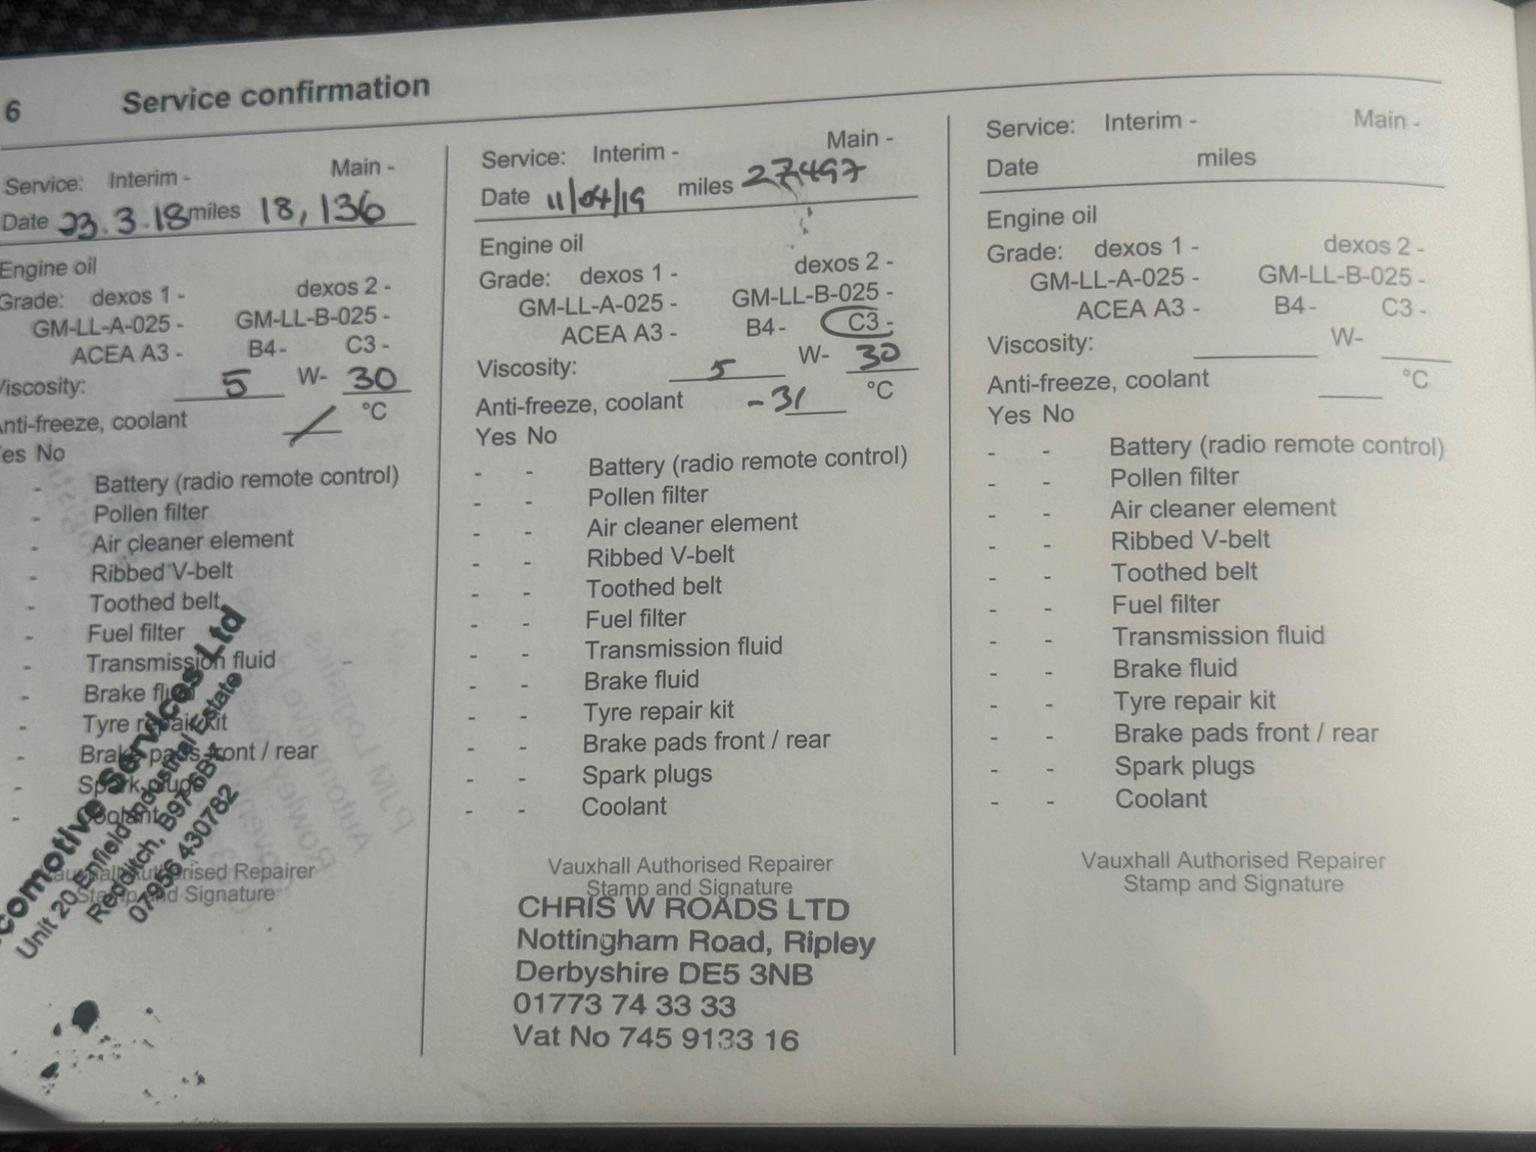 6 Service confirmation
Service: Interim - Main -
Date 23.3.18 miles 18,136
Engine oil
Grade: dexos 1 - dexos 2 -
GM-LL-A-025 - GM-LL-B-025 -
ACEA A3 - B4- C3 -
Viscosity: 5 W- 30
Anti-freeze, coolant / °C
Yes No
- Battery (radio remote control)
- Pollen filter
- Air cleaner element
- Ribbed V-belt
- Toothed belt
- Fuel filter
- Transmission fluid
- Brake fluid
- Tyre repair kit
- Brake pads front / rear
- Spark plugs
- Coolant
Vauxhall Authorised Repairer
Stamp and Signature
Services Ltd
Unit 20 Enfield Industrial Estate
Redditch, B97 6BY
07956 430782
Service: Interim - Main -
Date 11/04/19 miles 27,497
Engine oil
Grade: dexos 1 - dexos 2 -
GM-LL-A-025 - GM-LL-B-025 -
ACEA A3 - B4 - C3 -
Viscosity: 5 W- 30
Anti-freeze, coolant -31 °C
Yes No
- - Battery (radio remote control)
- - Pollen filter
- - Air cleaner element
- - Ribbed V-belt
- - Toothed belt
- - Fuel filter
- - Transmission fluid
- - Brake fluid
- - Tyre repair kit
- - Brake pads front / rear
- - Spark plugs
- - Coolant
Vauxhall Authorised Repairer
Stamp and Signature
CHRIS W ROADS LTD
Nottingham Road, Ripley
Derbyshire DE5 3NB
01773 74 33 33
Vat No 745 9133 16
Service: Interim - Main -
Date miles
Engine oil
Grade: dexos 1 - dexos 2 -
GM-LL-A-025 - GM-LL-B-025 -
ACEA A3 - B4- C3 -
Viscosity: W-
Anti-freeze, coolant °C
Yes No
- - Battery (radio remote control)
- - Pollen filter
- - Air cleaner element
- - Ribbed V-belt
- - Toothed belt
- - Fuel filter
- - Transmission fluid
- - Brake fluid
- - Tyre repair kit
- - Brake pads front / rear
- - Spark plugs
- - Coolant
Vauxhall Authorised Repairer
Stamp and Signature